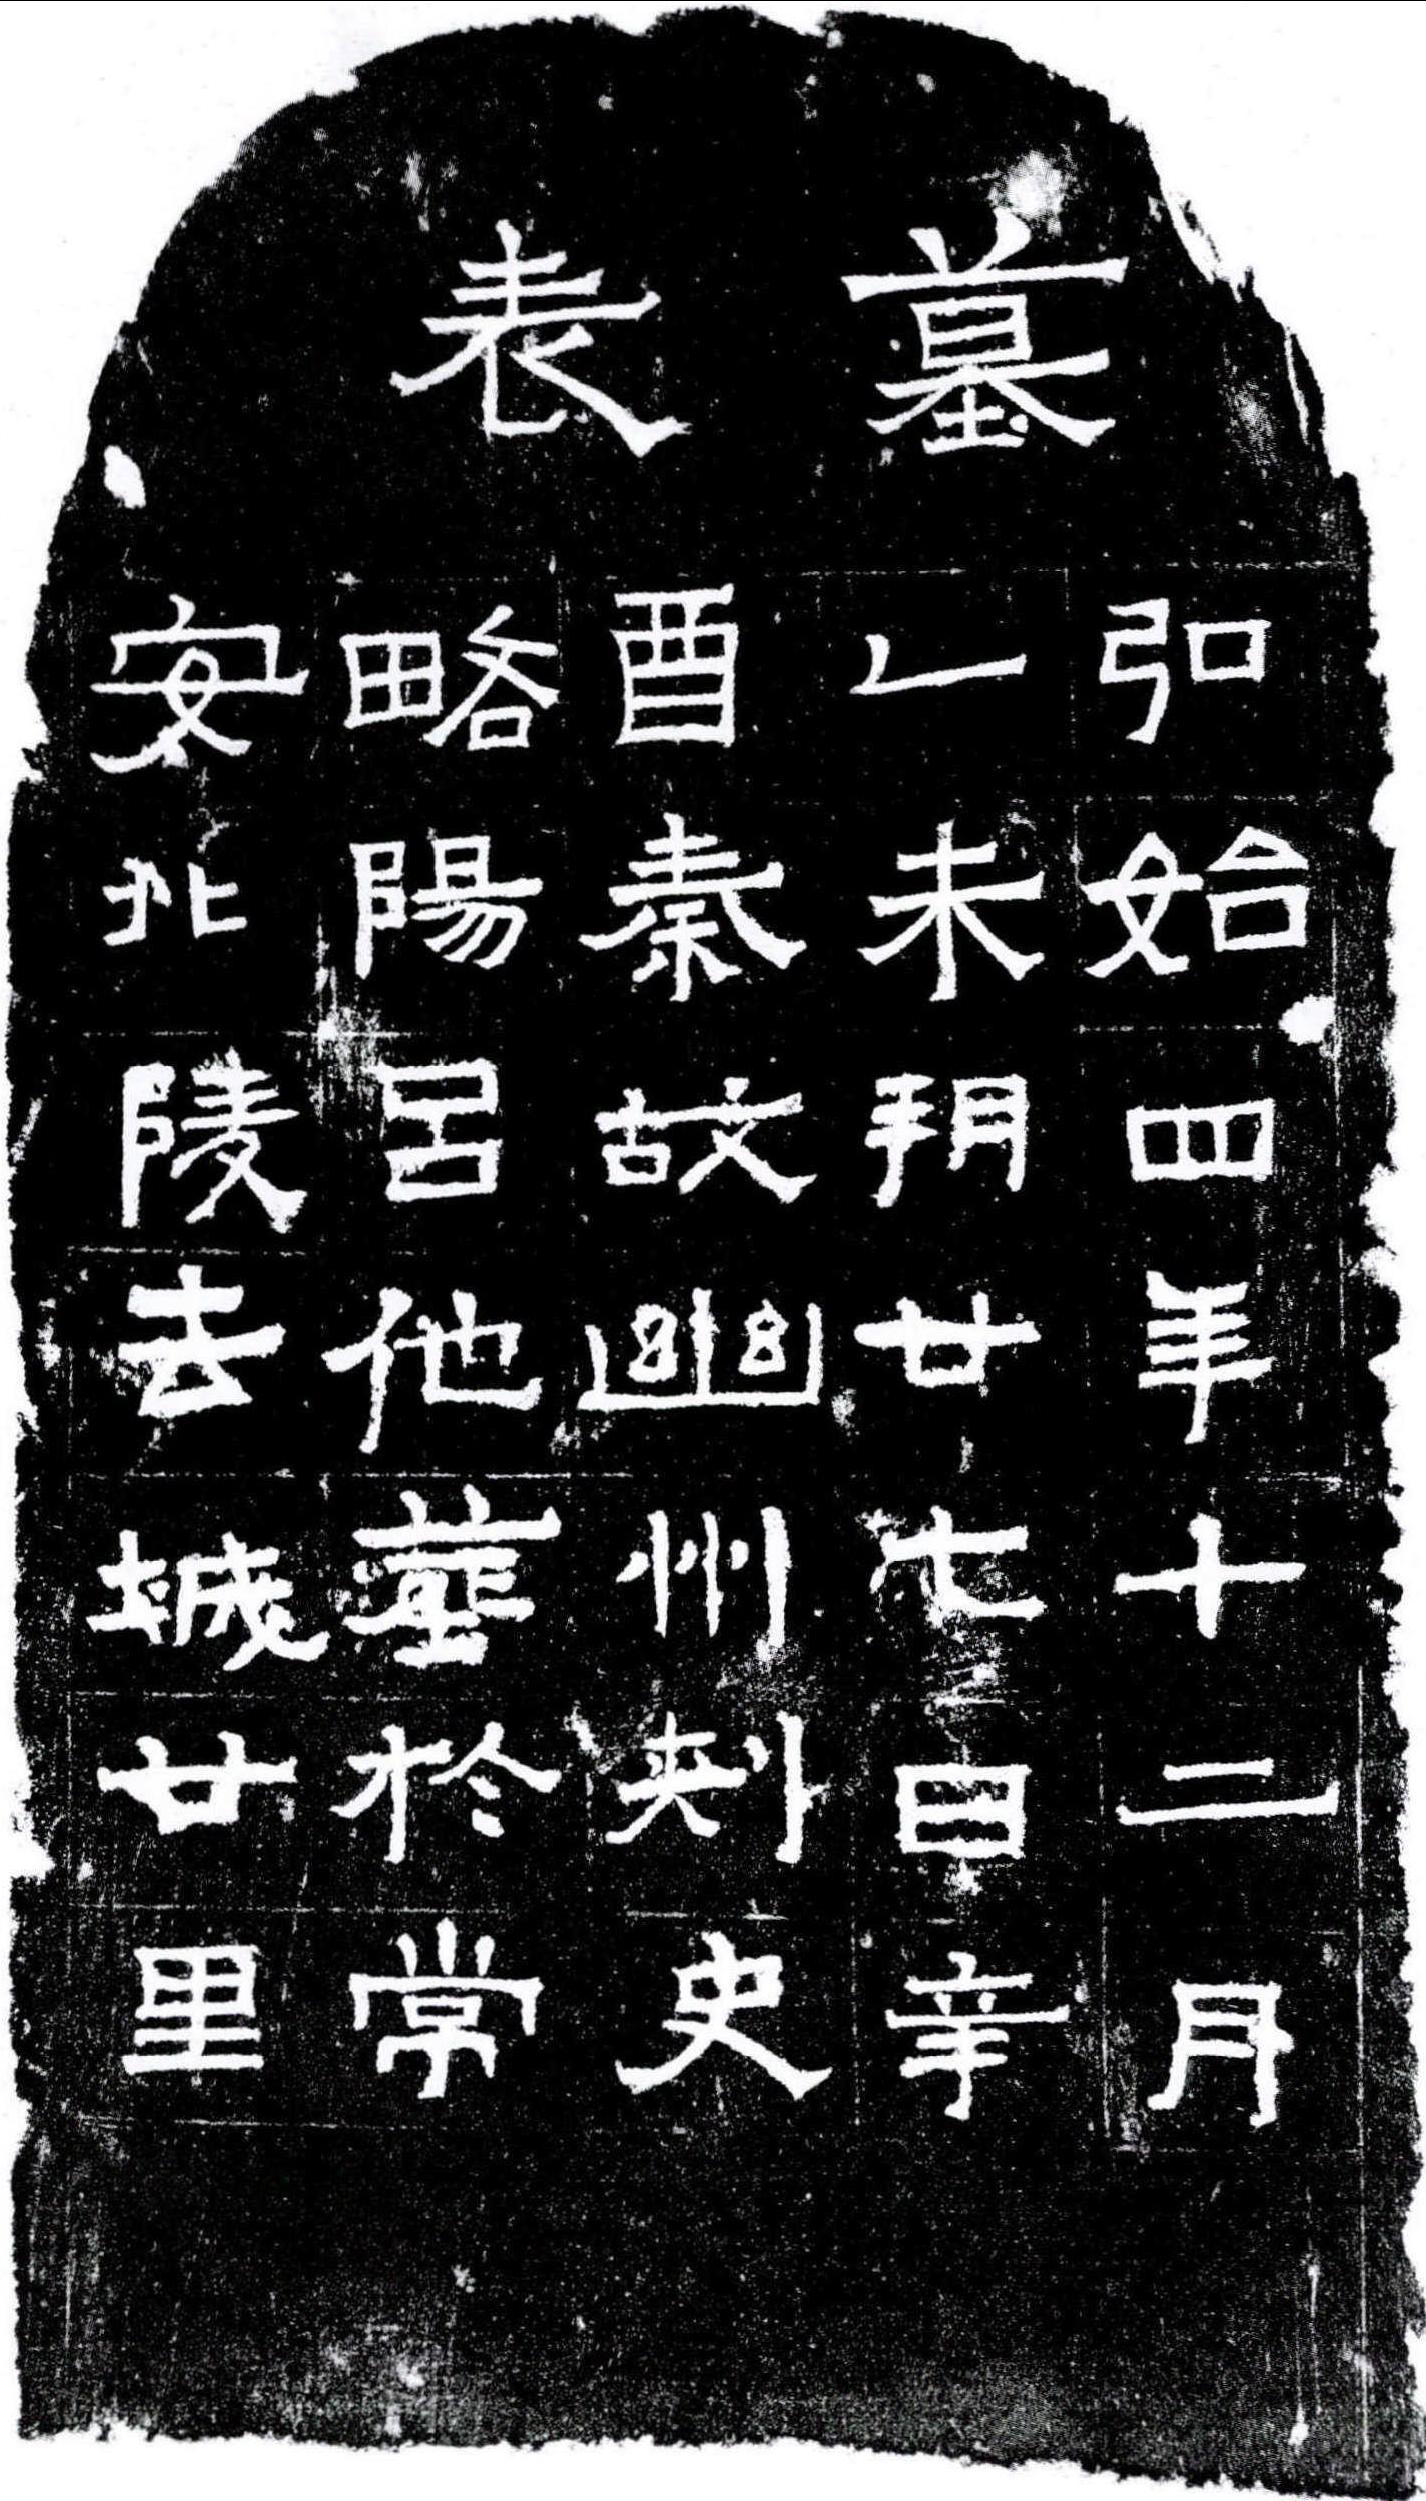 墓表
弘始四年十二月
乙未朔廿七日辛
酉秦故幽州刾史
略陽呂他葬於常
安北陵去城廿里